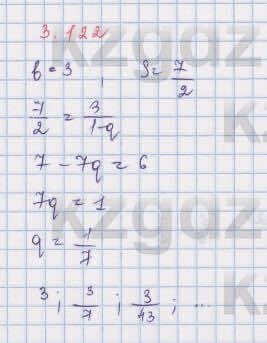 3.122
b = 3, S = 7/2
7/2 = 3/1-q
7 - 7q = 6
7q = 1
q = 1/7
3; 3/7; 3/43; ...